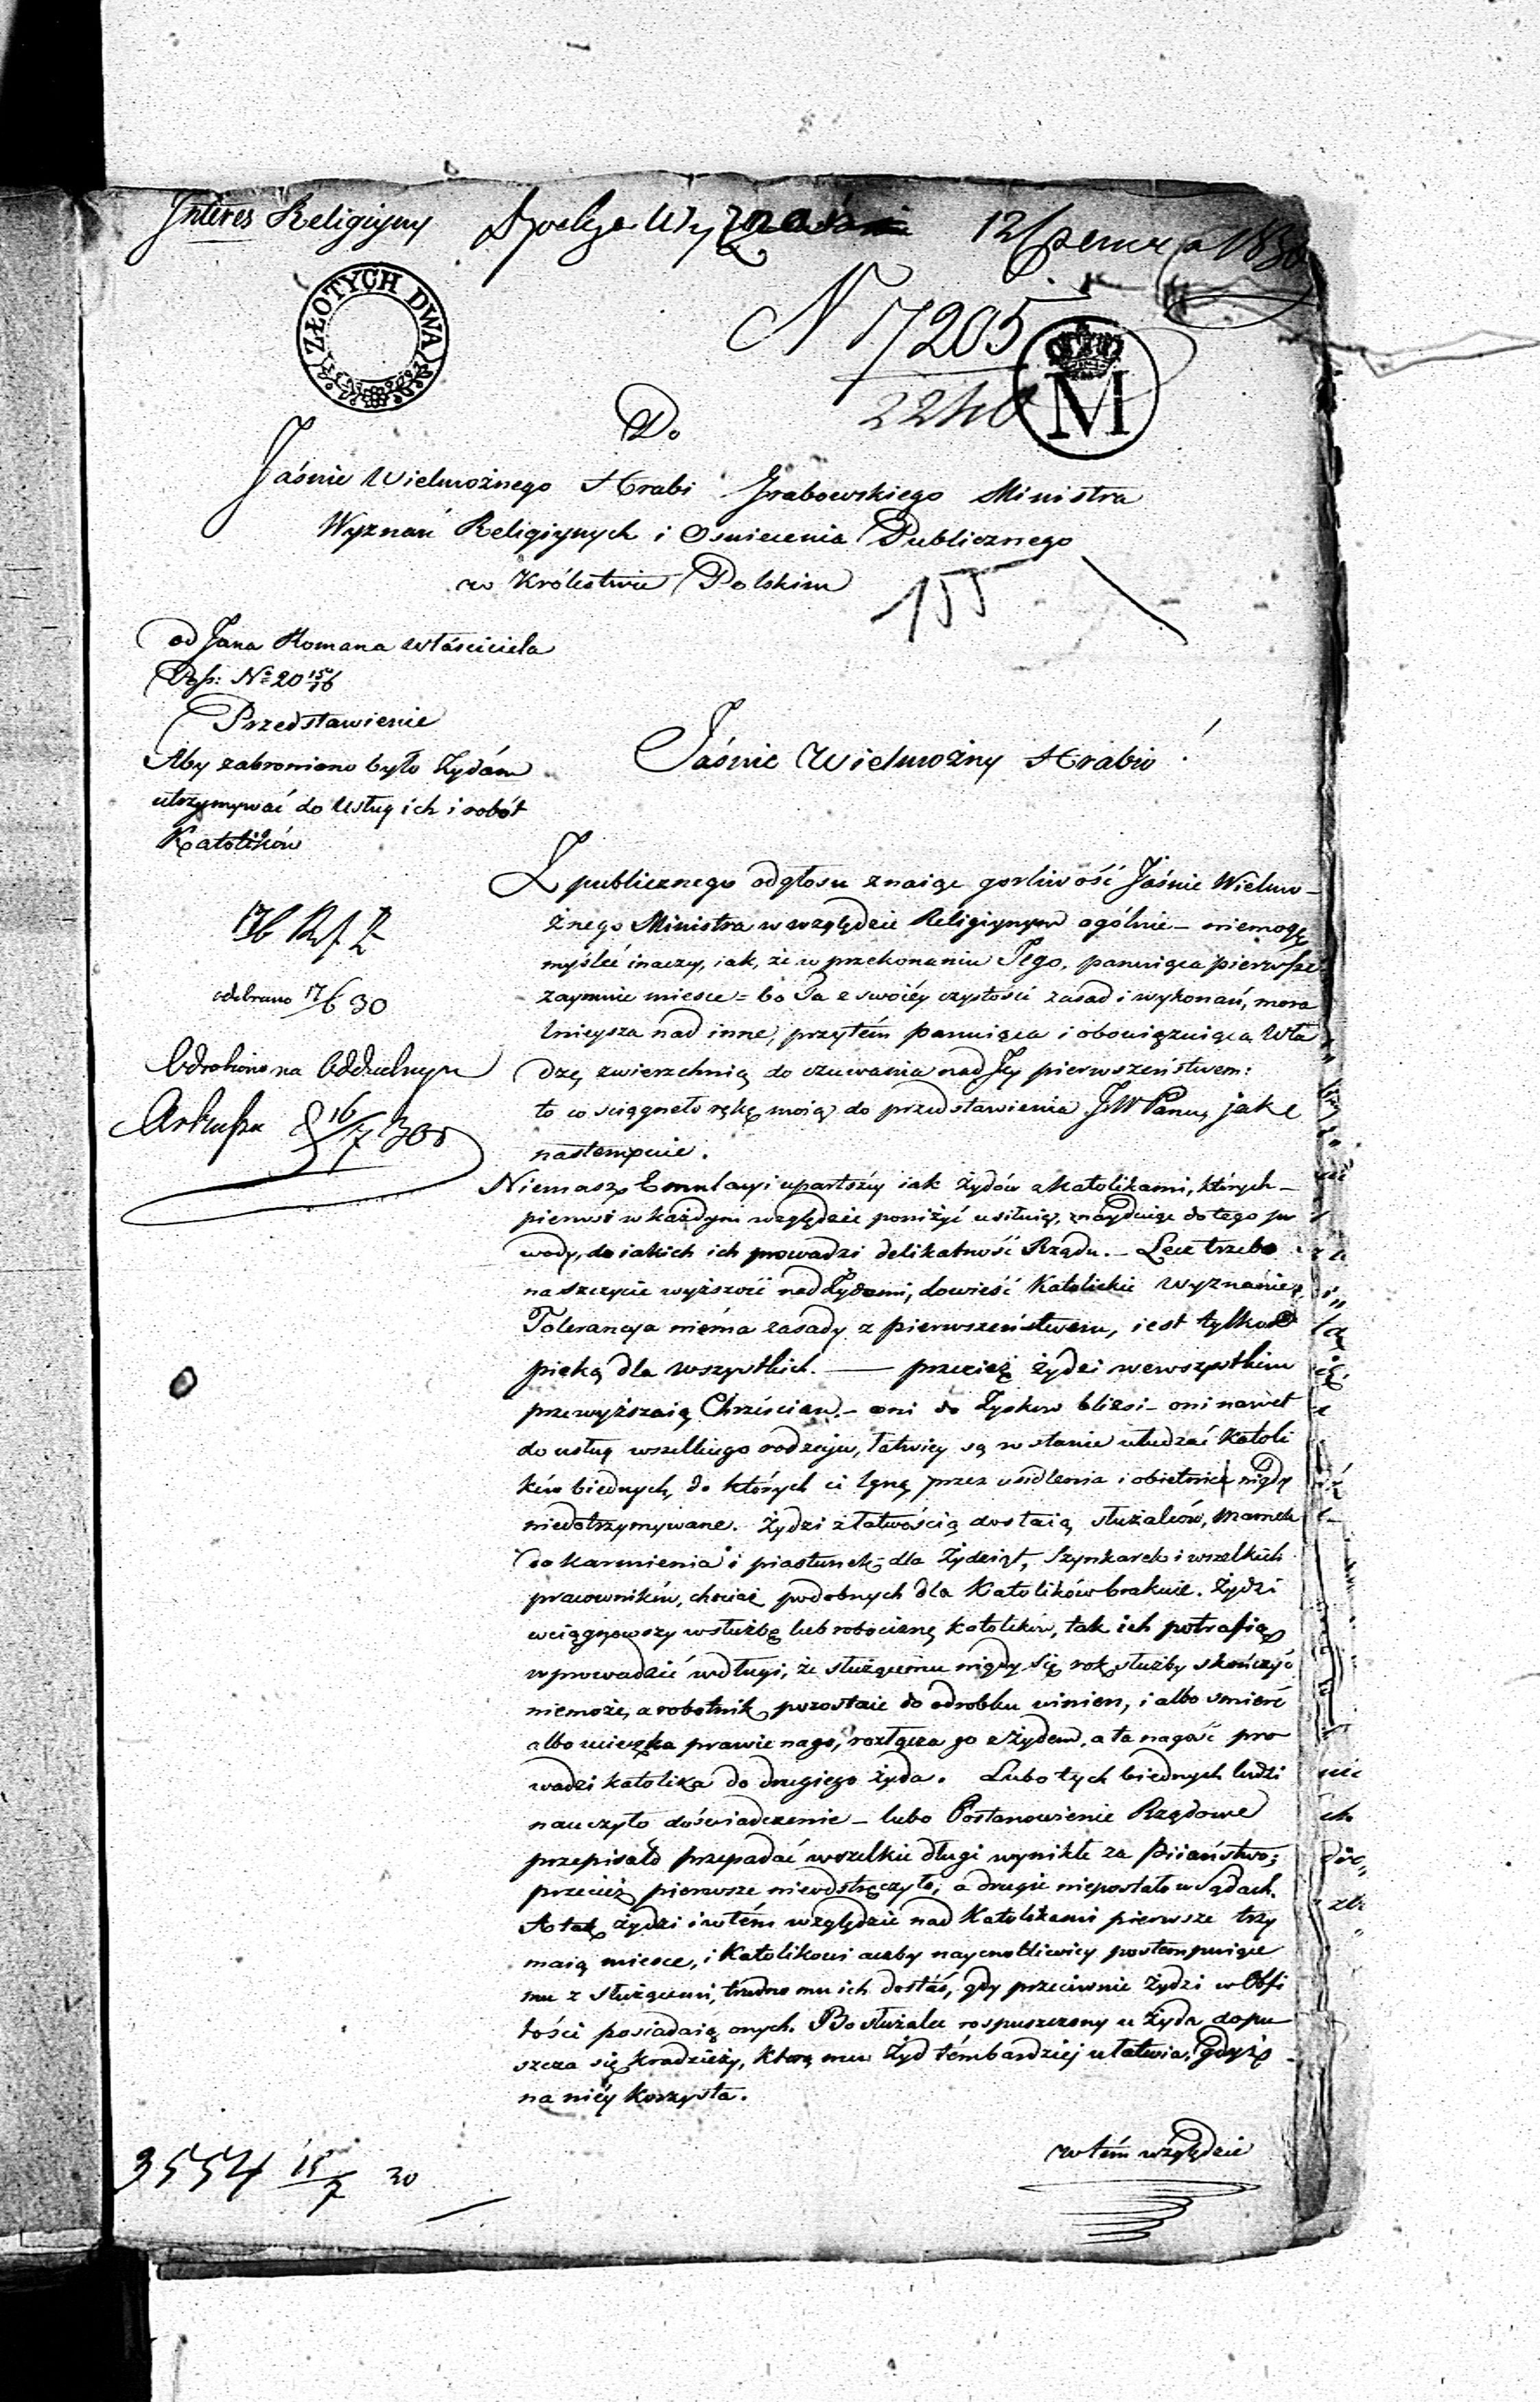 Interes Religijny
12 Czerwca 1830
ZŁOTYCH DWA
N 17205
2240
M
Do
Jaśnie Wielmożnego Hrabi Grabowskiego Ministra
Wyznań Religijnych i Oswiecenia Publicznego
w Królestwie Polskim
155
od Jana Romana Właściciela
N° 20
Przedstawienie
Aby zabroniono było Żydóm
utrzymywać do Usług ich i robót
Katolików
odebrano 17/6 30
Odrobiono na Oddzielnym
Arkuszu 16/7 30
Jaśnie Wielmożny Hrabio!
Z publicznego odgłosu znaiąc gorliwość Jaśnie Wielmo-
żnego Ministra w względzie Religijnym ogólnie - niemogę
myśleć inaczy, iak, że w przekonaniu Jego, panuiąca pierwsze
zaymuie miesce = bo Ta z swoiéy czystości zasad i wykonań, mora
lnieysza nad inne, przytém panuiąca i obowiązuiąca Wła
dzę zwierzchnią do czuwania nad Jey pierwszeństwem:
to co sciągneło rękę moią do przedstawienia JW Panu, jak
nastempuie.
Niemasz Emulacyi upartszéy iak Żydów z Katolikami, których -
pierwsi w każdym względzie poniżyć usiłuią, znayduiąc do tego po
wody, do iakich ich prowadzi delikatność Rządu. - Lecz trzeba
na szczycie wyższości nad Żydami, dowieść Katolickie Wyznanie,
Tolerancya niéma zasady z pierwszeństwem, iest tylko o
pieką dla wszystkich. — przecież żydzi we wszystkim
przewyższaią Chrześcian. - oni do Zysków bliżsi - oni nawet
do usług wszelkiego rodzaju, łatwiey są w stanie ułudzać Katoli
ków biednych, do których ci lgną przez usidlenia i obietnice nigdy
niedotrzymywane. Żydzi z łatwością dostaią służalców, Mamek
do karmienia i piastunek dla Żydziąt, Szynkarek i wszelkich
pracowników, chociaż podobnych dla Katolików brakuie. Żydzi
wciągnąwszy w służbę lub robociznę katolików, tak ich potrafią
wprowadzić w długi, że służącemu nigdy się rok służby skończyć
niemoże, a robotnik pozostaie do odrobku winien, i albo smierć
albo ucieczka prawie nago, rozłącza go z Żydem, a ta nagość pro
wadzi katolika do drugiego żyda. Lubo tych biednych ludzi
nauczyło doświadczenie - lubo Postanowienie Rządowe
przepisało przepadać wszelkie długi wynikłe za Piiaństwo;
przecież pierwsze nieodstręczyło, a drugie niepostało w Sądach.
A tak żydzi i w tém względzie nad Katolikami pierwsze trzy
maią miesce, i Katolikowi aczby naycnotliwiey postempuiące
mu z służącemi, trudno mu ich dostać, gdy przeciwnie Żydzi w Obfi
tości posiadaią onych. Bo służalec rospuszczony u Żyda dopu
szcza się kradzieży, którą mu Żyd témbardziej ułatwia, Gdyż
na niéy korzysta.
w tém względzie
3554 15/7 30